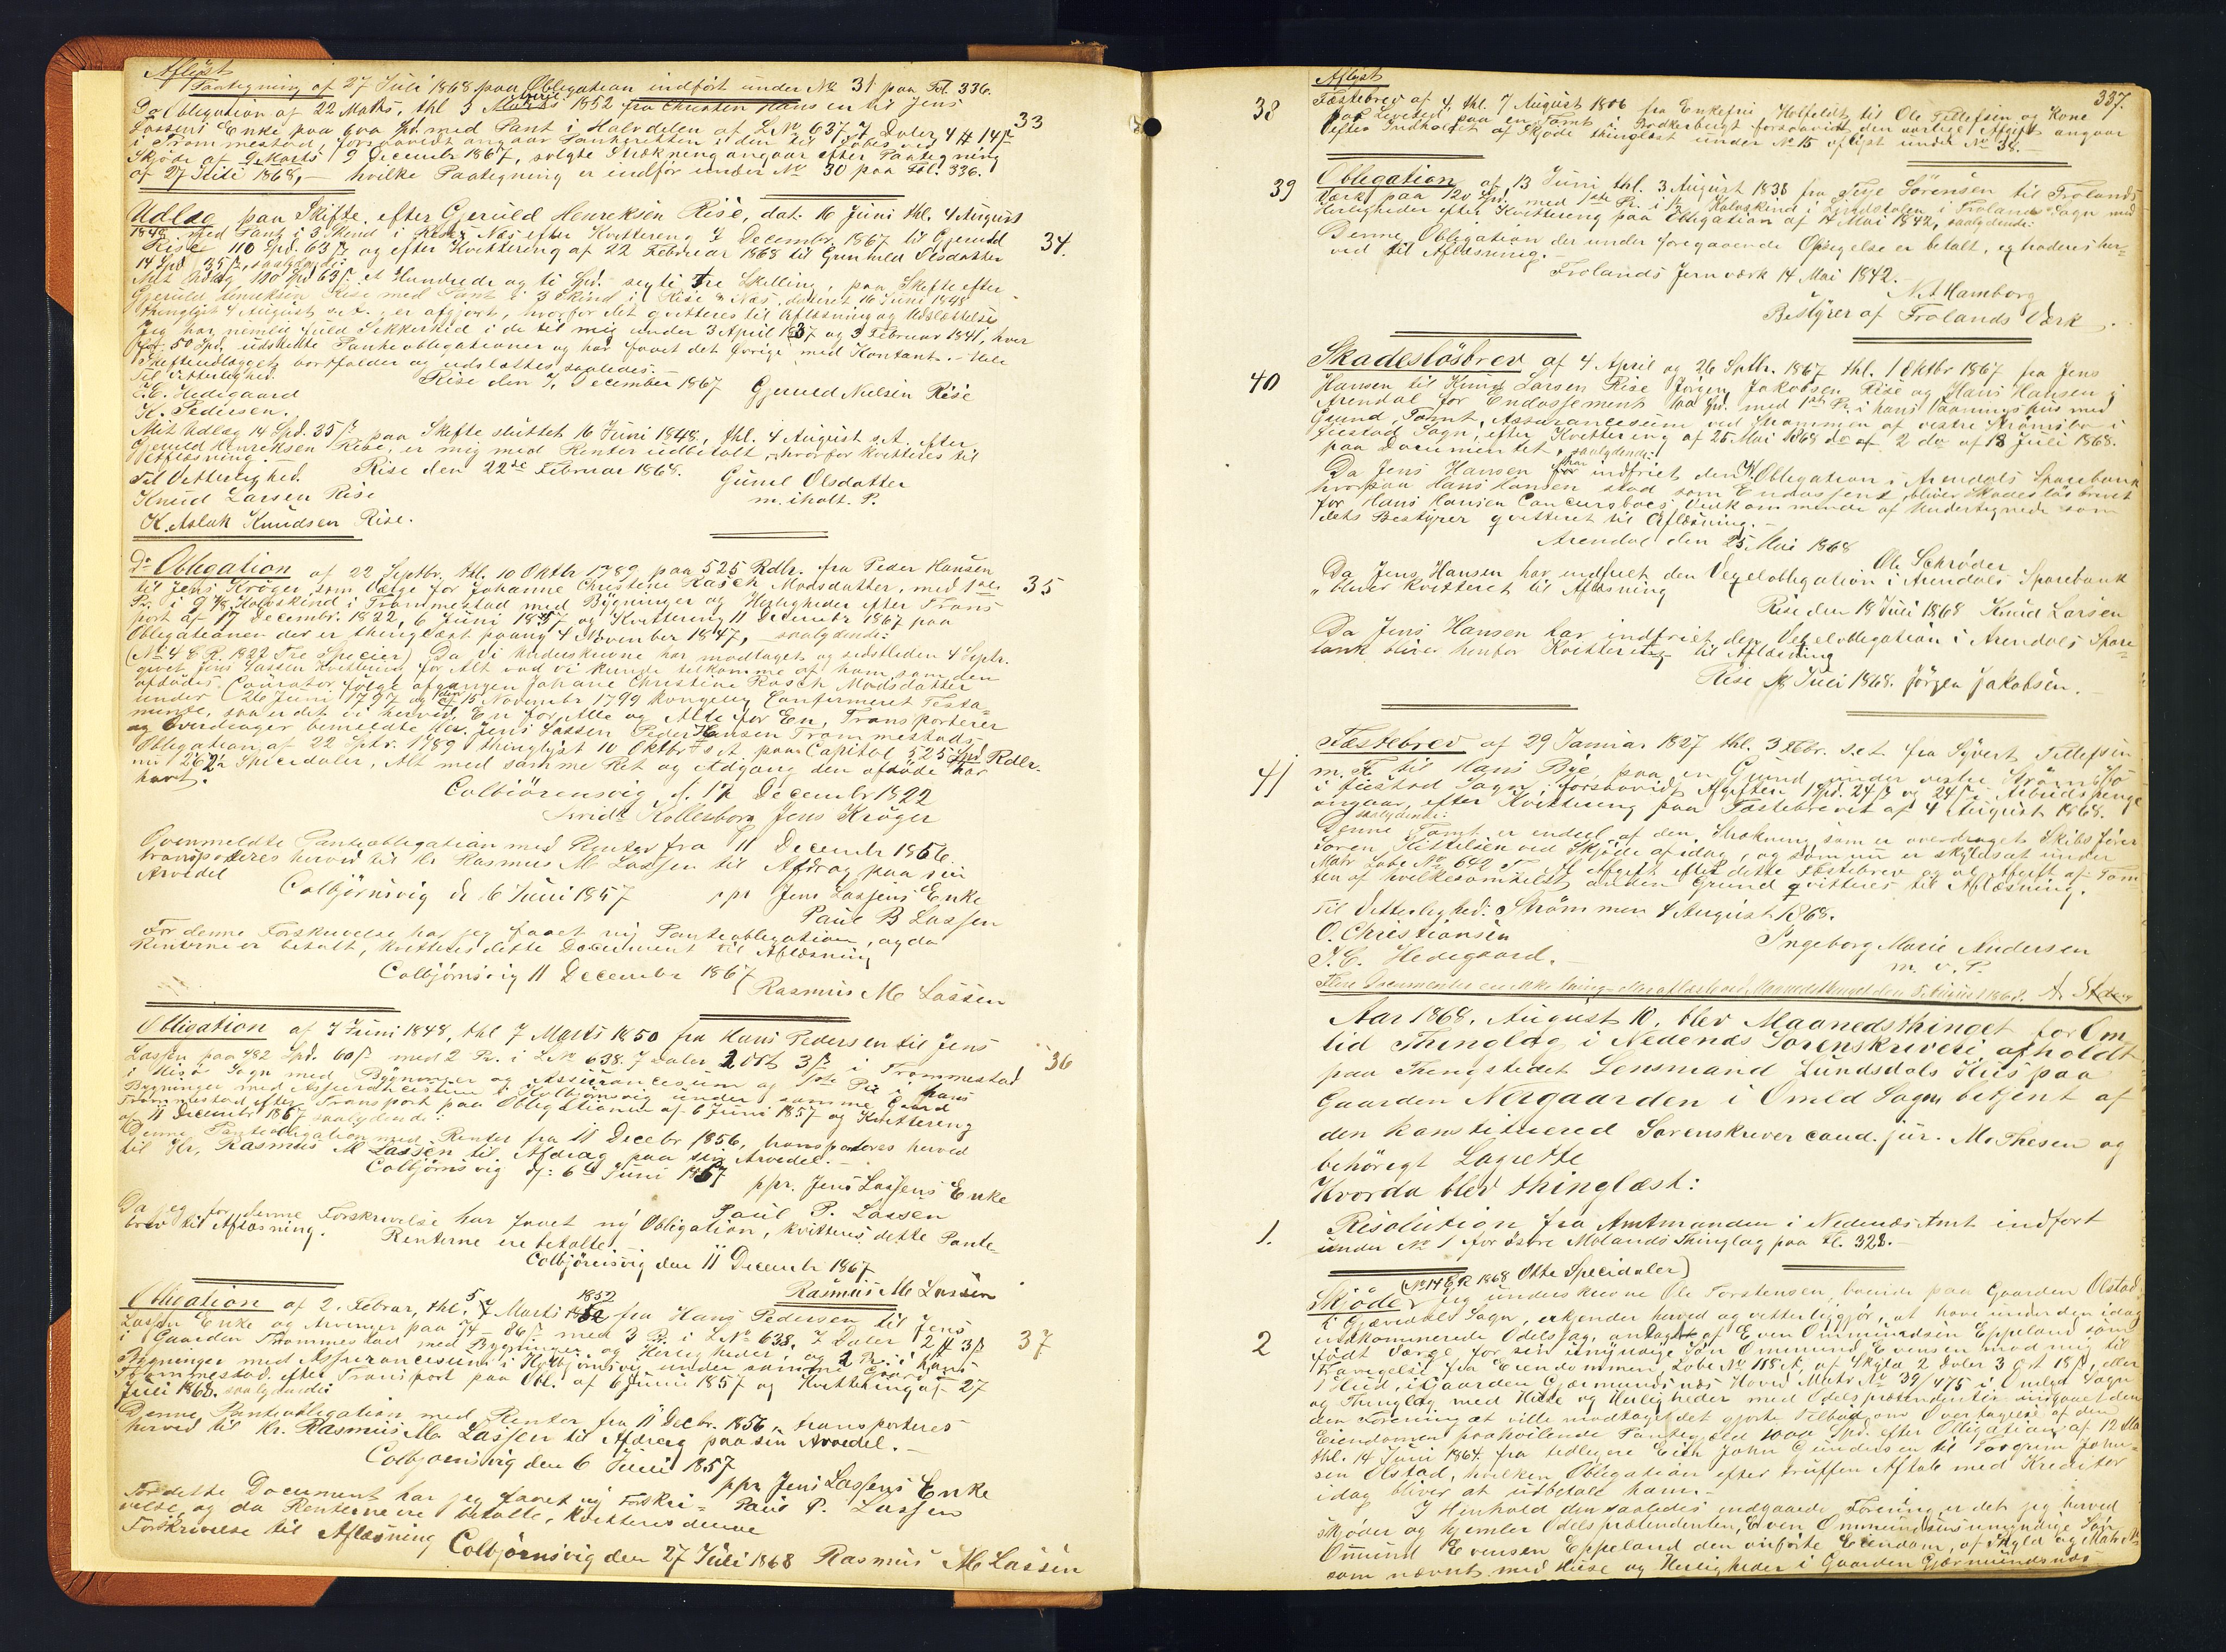 Aflöst
Paategning af 27 Juli 1868 paa Obligation indfört under No 31 paa Fol. 336.
Do Obligation af 22 Marts, thl 3 1852 fra Christen Hansen til Jens
33
Lassens Enke paa 600 Spd. med Pant i Halvdelen af L No 637, 7 Daler 4 # 14 β
i Trommestad, forsaavidt angaar Panteretten i den til
Skjöde af 9 Marts 9 Decembr 1867, solgte Strækning angaar efter Paategning
af 27 Juli 1868, – hvilke Paategning er indför under No 30 paa Fol. 336.
Udlæg paa Skifte efter Gjeruld Henreksen Rise, dat. 16 Juni thl. 4 August
1848, med Pant i 3 Skind i Rise & Næs efter Kvittering 7 Decembr. 1867 til Gjeruld
34.
Rise 110 Spd. 63 β og efter Kvittering af 22 Februar 1868 til Gunhild Olsdatter
14 Spd 35 β, saalydende:
Mit Udlæg 110 Spd 63 β et Hundrede og ti Spd. sexti tre Skilling, paa Skifte efter
Gjeruld Henreksen Rise med Pant i 3 Skind i Rise & Næs, dateret 16 Juni 1848
thinglyst 4 August s. A. er afgjort, hvorfor det qvitteres til Aflæsning og Udslettelse
Jeg har nemlig fuld Sikkerhed i de til mig under 3 April 1837 og 3 Februar 1841, hver
for 50 Spd. udstedte Panteobligationer og har faaet det övrige med Kontant. – Hele
Skifteudlægget bortfalder og udslettes saaledes. –
Til Vitterlighed. Rise den 7 December 1867 Gjeruld Nielsen Rise
E. E. Hedegaard
K. Pedersen.
Mit Udlæg 14 Spd. 35 β paa Skifte sluttet 16 Juni 1848, thl. 4 August s. A. efter
Gjeruld Henriksen Rise, er mig med Renter udbetalt, hvorfor kvitteres til
Aflæsning. –
Til Vitterlighed. Rise den 22de Februar 1868. Gunil Olsdatter
Knud Larsen Rise m. iholt. P.
K. Aslak Knudsen Rise.
Do Obligation af 22 Septbr. thl. 10 Oktbr 1789 paa 525 Rdlr. fra Peder Hansen
til Jens Kröger, som Værge for Johanne Christine Rasch Madsdatter, med 1ste
35
Pr. i 9 7/8 Kalvskind i Trommestad med Bygninger og Herligheder efter Trans-
port af 17 Decembr. 1822, 6 Juni 1857 og Kvittering 11 Decembr 1867 paa
Obligationen der er thinglæst paany 4 November 1847, – saalydende:
(No 4 E. R. 1822 Tre Specier) Da vi Underskrevne har modtaget og sidstleden 4 Septr.
givet Jens Lassen Kvittering for Alt vad vi kunde tilkomme af ham, som den
afdödes Courator fölge afgangen Johane Christine Rasch Madsdatter
under 26 Juni 1797 og den 15 Novembr 1799 kongelig Confermeret Testa-
mente, saa er det vi herved, En for Alle og Alle for En, Transporterer
og Overdrager bemeldte Hr. Jens Lassen Peder Hansen Trommestads
Obligation af 22 Sptr. 1789 thinglyst 10 Oktbr s. A. paa Capital 525 Rdlr.
nu 262½ Speciedaler, Alt med samme Ret og Adgang den afdöde har
havt.
Colbiörensvig d. 17 Decembr 1822
Kollesborn Jens Kröger
Ovenmeldte Panteobligation med Renter fra 11 Decembr 1856
transporteres herved til Hr Rasmus M. Lassen til Afdrag paa sin
Arvedel
Colbjörnsvig d 6 Juni 1857 ppr Jens Lassens Enke
Paul B Lassen
For denne Forskrivelse har jeg faaet ny Panteobligation, og da
Renterne er betalt, kvitteres dette Document til Aflæsning
Colbjörnsvig 11 Decembr 1867
Rasmus M Lassen
Obligation af 7 Juni 1848, thl 7 Marts 1850 fra Hans Pedersen til Jens
Lassen paa 482 Spd. 60 β med 2 Pr. i L No 638. 7 Daler 2 Ort 3 β i Trommestad
36
i Hisö Sogn med Bygninger og Assurancesum og 1ste Pr i hans
Bygninger med Assurancesum i Kolbjörnsvig under samme Gaard
Trommestad efter Transport paa Obligationen af 6 Juni 1857 og Kvittering
af 11 Decembr 1867 saalydende:
Denne Panteobligation med Renter fra 11 Decebr 1856, transporteres herved
til Hr. Rasmus M Lassen til Afdrag paa sin Arvedel. –
Colbjörnsvig d. 6te Juni 1857 ppr. Jens Lassens Enke
Paul P. Lassen
Da jeg for denne Forskrivelse har faaet ny Obligation, kvitteres dette Pante-
brev til Aflæsning. Renterne ere betalte. –
Colbjörnsvig den 11 Decembr 1867
Rasmus M Lassen
Obligation af 2. Februar, thl. 5 Marts 1852 fra Hans Pedersen til Jens
Lassen Enke og Arvinger paa 74 – 86 β med 3 Pr. i L No 638. 7 Daler 2 # 3 β
37
i Gaarden Trommestad med Bygninger og Herligheder, og 2 Pr. i hans
Bygninger med Assurancesum i Kolbjörnsvig under samme Gaard
Trommestad efter Transport paa Obl. af 6 Juni 1857 og Kvittering af 27
Juli 1868. saalydende:
Denne Panteobligation med Renter fra 11 Decbr. 1856, transporteres
herved til Hr. Rasmus M. Lassen til Afdrag paa sin Arvedel. –
Colbjörnsvig den 6 Juni 1857
ppr Jens Lassens Enke
For dette Document har jeg faaet ny Forskri- Paul P. Lassen
velse, og da Renterne ere betalte, kvitteres denne
Forskrivelse til Aflæsning
Colbjörnsvig den 27 Juli 1868 Rasmus M Lassen
Aflöst
337.
38
Fæstebrev af 4, thl. 7 August 1806 fra Enkefru Holfeldt til Ole Tellefsen og Kone
paa Levetid paa en Tomt i forsaavidt den aarlige Afgift angaar
efter Indholdet af Skjöde thinglæst under No 15 aflyst under No 38. –
39
Obligation af 13 Juni thl. 3 August 1838 fra Terje Sörensen til Frolands
Værk paa 120 Spd. med 1ste Pr. i Kalvskind i i Froland Sogn med
Herligheder efter Kvittering paa Obligation af 14 Mai 1842, saalydende:
Denne Obligation der under foregaaende Opsigelse er betalt, qvitteres her-
ved til Aflæsning. –
Frolands Jernværk 14 Mai 1842. –
N. A Hamborg
Bestyrer af Frolands Værk.
40
Skadeslösbrev af 4 April og 26 Sptbr. 1867 thl. 1 Oktbr 1867 fra Jens
Hansen til Knud Larsen Rise Jörgen Jakobsen Rise og Hans Hansen i
Arendal for Endossement 400 Spd. med 1ste Pr. i hans Vaaningshus med
Grund, Tomt, Assurancesum ved Strømmen af vestre Strømsbo i
Öiestad Sogn, efter Kvittering af 25 Mai 1868 og 2 do af 18 Juli 1868.
paa Documentet, saalydende:
Da Jens Hansen har indfriet den Obligation i Arendals Sparebank
hvorpaa Hans Hansen stod som Endossent, bliver Skadeslösbrevet
for Hans Hansen Concursboes Vedkommende af Undertegnede som
dets Bestyrer qvitteret til Aflæsning. –
Arendal den 25 Mai 1868
Ole Schrøder
Da Jens Hansen har indfriet den Vexelobligation i Arendals Sparebank
bliver kvitteret til Aflæsning
Rise den 18 Juli 1868 Knud Larsen
Da Jens Hansen har indfriet den Vexelobligation i Arendals Spare-
bank bliver herfor Kvitteret til Aflæsning
Rise 18 Juli 1868. Jörgen Jakobsen. –
Fæstebrev af 29 Januar 1827 thl. 3 Febr. s. A. fra Syvert Tellefsen
41
m. Fl. til Hans Bye, paa en Grund under vestre Strömsbo
i Öiestad Sogn, forsaavidt Afgiften 1 Spd. 24 β og 24 β i Arbeidspenge
angaar, efter Kvittering paa Fæstebrevet af 4 August 1868.
saalydende:
Denne Tomt er endeel af den Strækning som er overdraget Skibsförer
Sören Kittelsen ved Skjöde af idag, og som nu er skyldsat under
Matr Löbe No 642 F. til Afgift efter dette Fæstebrev og al Afgift af Tom-
ten af hvilkesomhelst anden Grund qvitteres til Aflæsning.
Til Vitterlighed: Strömmen 4 August 1868.
O. Christiansen Ingeborg Marie Andersen
J. E. Hedegaard. – m. i. P.
Flere Documenter ere ikke thing- eller aflæst ved Maanedsthinget den 5 August 1868.
Aar 1868, August 10. blev Maanedsthinget for Om-
lid Thinglag i Nedenæs Sorenskriveri afholdt
paa Thingstedet Lensmand Lundsdals Hus paa
Gaarden Nergaarden i Omlid Sogn betjent af
den konstituered Sorenskriver cand. jur. M. Thesen og
behörigt Lagrette
Hvorda blev thinglæst:
1.
Resolution fra Amtmanden i Nedenæs Amt indfört
under No 1 for östre Molands Thinglag paa Fl. 328. –
(No 14 E R 1868 Otte Specidaler)
Skjöde Jeg underskrevne Ole Torstensen, boende paa Gaarden Olstad
i Gjævedals Sogn, erkjender herved og vitterliggjör, at have under den idag
2
indkommerede Odelssag, anlagt af Even Ommundsen Eppeland som
födt Værge for sin umyndige Sön Ommund Evensen mod mig til
Fravigelse fra Eiendommen Löbe No 118 A, af Skyld 2 Daler 3 Ort 18 β, eller
1 Hud, i Gaarden Gjermundsnæs Hoved Matr No 39/475 i Omlid Sogn
og Thinglag med Huse og Herligheder med Odelsprætendenten indgaaet den
den Forening at ville modtaget det gjorte Tilbud om Overtagelse af den
Eiendomen paahvilende Pantegjæld 1000 Spd. efter Obligation af 12 Mai
thl. 14 Juni 1864 fra tidligere Eier John Gundersen til Torgrim John-
sen Olstad, hvilken Obligation efter truffen Aftale med Kreditor
idag bliver at udbetale ham. –
I Henhold den saaledes indgaaede Forening er det jeg herved
skjöder og hjemler Odelsprætendenten, Even Ommundsens umyndige Sön
Omund Evensen Eppeland den anförte Eiendom, af Skyld og Matr No
som nævnt med Huse og Herligheder i Gaarden Gjermundsnæs